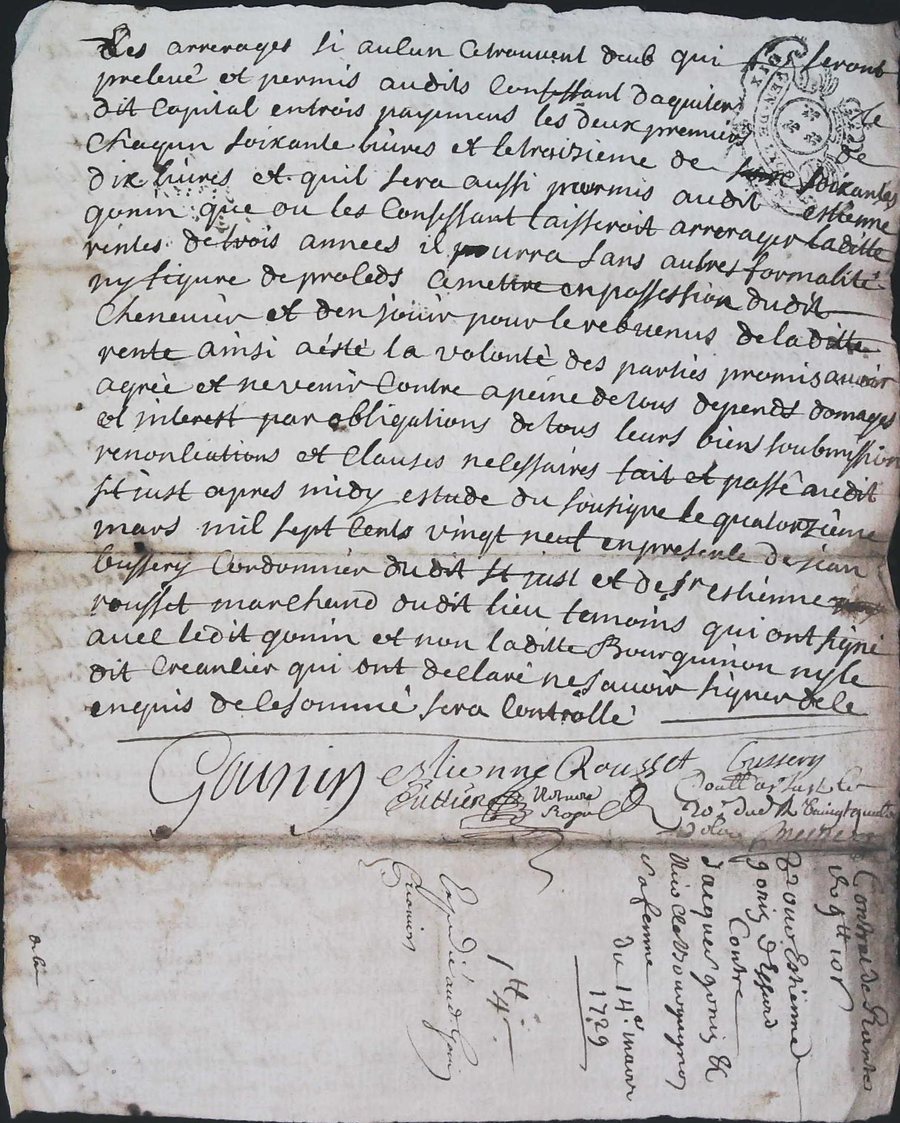 Les arrerages si aulcun cetrouvent deub qui seront
prelevé et permis audits Confessant daquiter le
dit Capital entrois payemens les deux premier de
Chaqun soixante livres et letroizieme de soixantes
dix livres et quil sera aussi permis audit estienne
gonin que ou les Confessant laisseroit arrerager laditte
rentes detrois annees il pourra sans autres formalité
ny figure deproleds cemettre enpossession dudit
Chenevier et den jöuir pour lerevenus deladitte
rente ainsi aésté la volonté des partiés promis avoir
agreè et nevenir Contre apeine detous depends domages
et interest par obligations detous leurs bien soubmission
renonciations et Clauses necessaires fait et passé audit
st just apres midy estude du sousigne le quatorziéme
mars mil sept Cents vingt neuf enpresence de jean
bussery Cordonnier dudit st just et de sr estienne
rousset marchand dudit lieu temoins qui ont signé
avec ledit gonin et non laditte Bourguinon nyle
dit Creancier qui ont declaré nesavoir signer dele
enquis delesommé sera Controllé
Gounin estienne Rousset bussery
Notaire
Royal
Contrat de Rantes
de 9tt 10s
Pour Estienne
gonin dessurd
Contre
Jacques gonin &
sa femme
du 14e mars
1729
1tt 4s
Expedié aud gonin